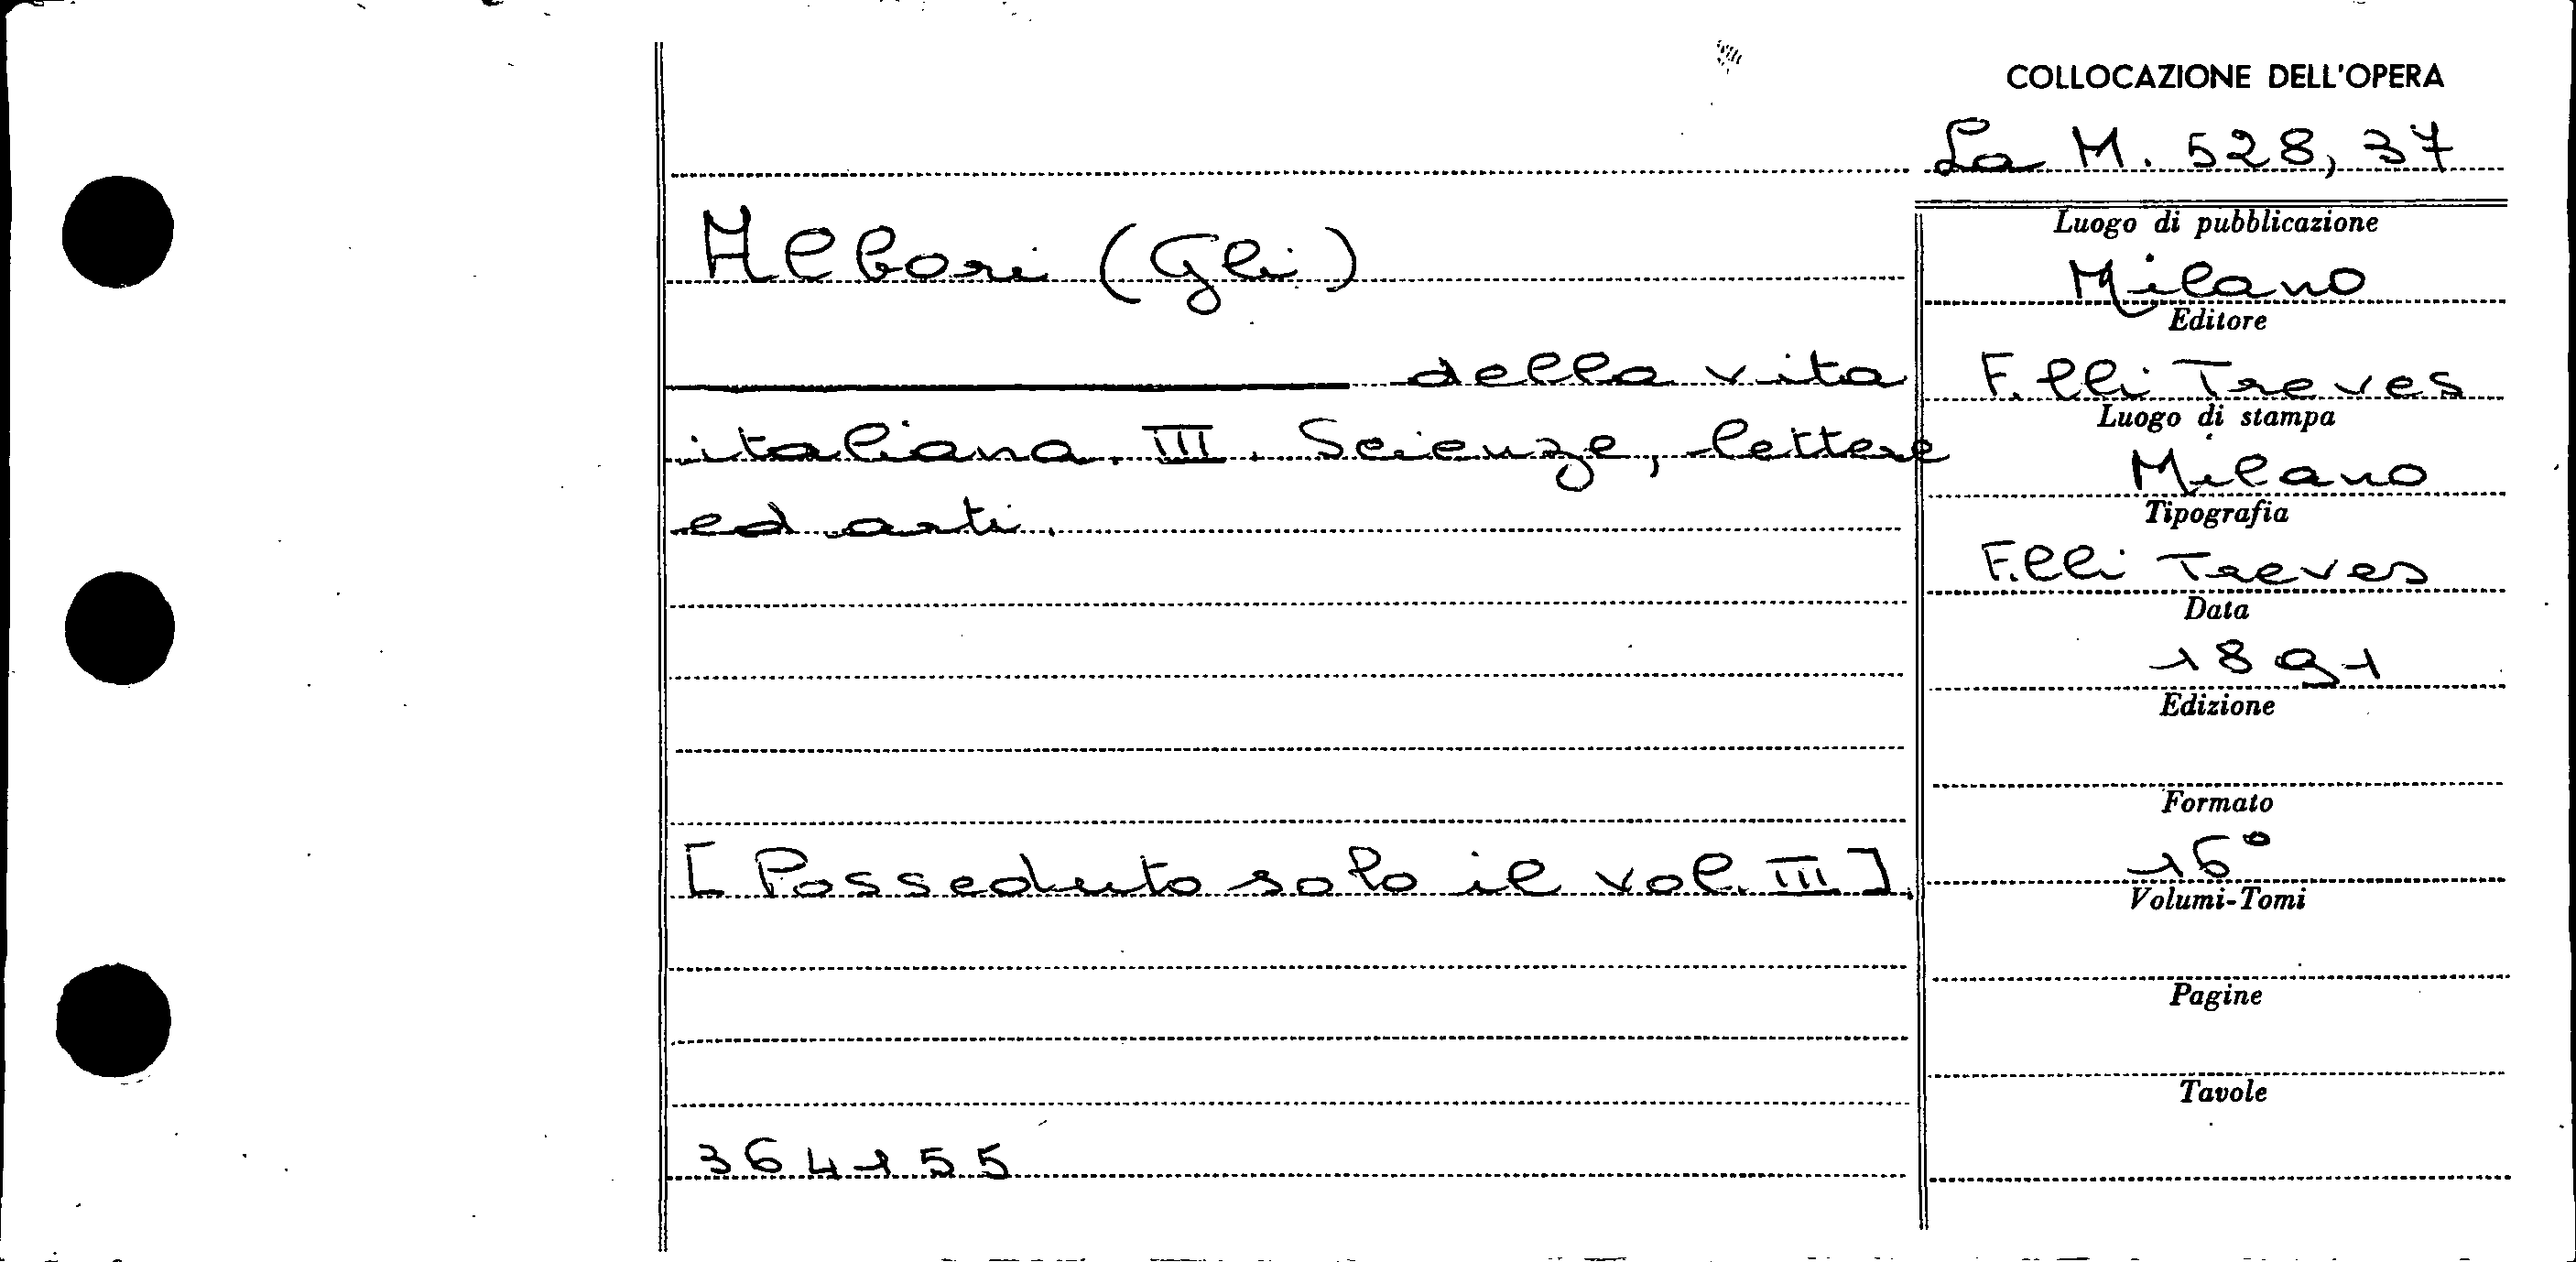 COLLOCAZIONE DELL'OPERA
La M. 528, 37
Albori (Gli)
della vita
italiana. III. Scienze, lettere
ed arti.
[Posseduto solo il vol. III].
364155
Luogo di pubblicazione
Milano
Editore
F.lli Treves
Luogo di stampa
Milano
Tipografia
F.lli Treves
Data
1891
Edizione
Formato
16°
Volumi-Tomi
Pagine
Tavole